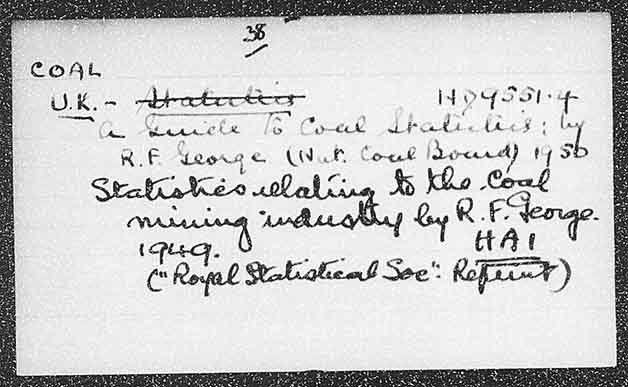 38
COAL
U.K. - Statistics HD9551.4
A Guide to Coal Statistics; by
R.F. George (Nat. Coal Board) 1950
Statistics relating to the Coal
mining industry by R.F. George.
1949. HA1
("Royal Statistical Soc": Reprint)